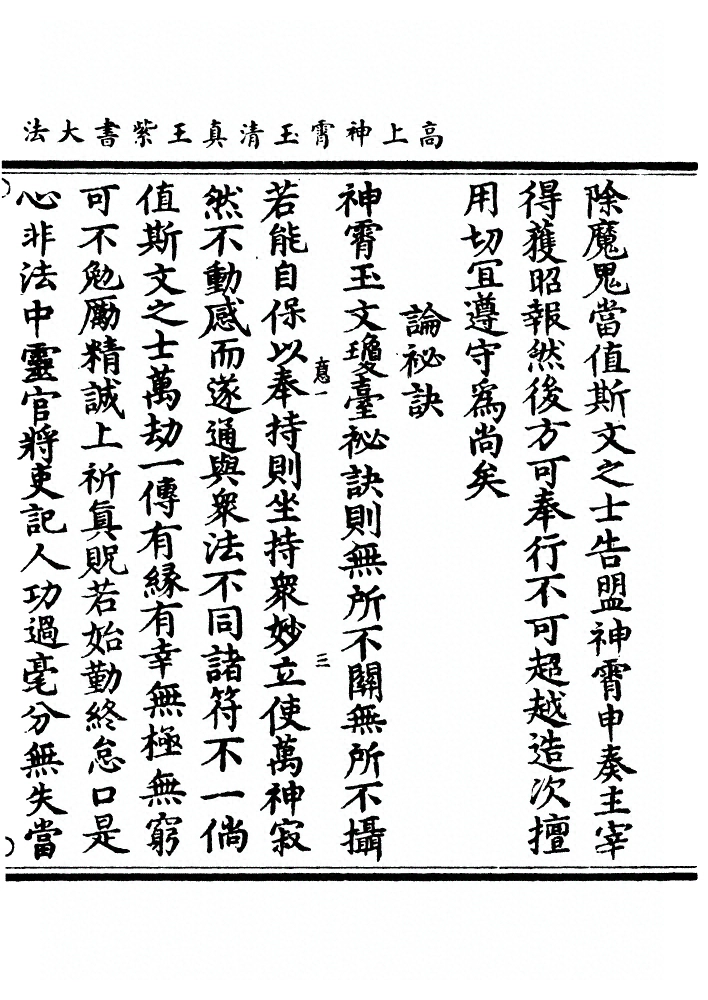 高上神霄玉清真王紫書大法
除魔鬼當值斯文之士告盟神霄申奏主宰
得獲昭報然後方可奉行不可超越造次擅
用切宜遵守為尚矣
論祕訣
神霄玉文瓊臺祕訣則無所不關無所不攝
意一
三
若能自保以奉持則坐持衆妙立使萬神寂
然不動感而遂通與衆法不同諸符不一倘
值斯文之士萬劫一傳有緣有幸無極無窮
可不勉勵精誠上祈真貺若始勤終怠口是
心非法中靈官將吏記人功過毫分無失當